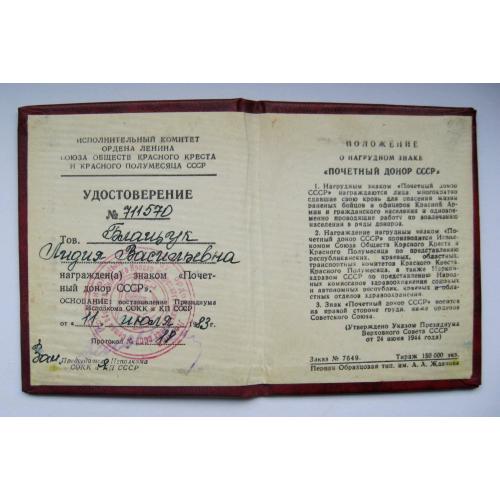 ИСПОЛНИТЕЛЬНЫЙ КОМИТЕТ
ОРДЕНА ЛЕНИНА
СОЮЗА ОБЩЕСТВ КРАСНОГО КРЕСТА
И КРАСНОГО ПОЛУМЕСЯЦА СССР
УДОСТОВЕРЕНИЕ
№ 711570
Тов.
Лидия Васильевна
награжден(а) знаком «Почет-
ный донор СССР».
ОСНОВАНИЕ: постановление Президиума
Исполкома СОКК и КП СССР
от «11» июля 1983г.
Протокол № 18
Зам. Председатель Исполкома
СОКК и КП СССР
ПОЛОЖЕНИЕ
О НАГРУДНОМ ЗНАКЕ
«ПОЧЕТНЫЙ ДОНОР СССР»
1. Нагрудным знаком «Почетный донор
СССР» награждаются лица, многократно
сдавшие свою кровь для спасения жизни
раненых бойцов и офицеров Красной Ар-
мии и гражданского населения и одновре-
менно проводящие работу по вовлечению
населения в ряды доноров.
2. Награждение нагрудным знаком «По-
четный донор СССР» производится Испол-
комом Союза Обществ Красного Креста и
Красного Полумесяца по представлению
республиканских, краевых, областных,
транспортных комитетов Красного Креста,
Красного Полумесяца, а также Нарком-
здравом СССР по представлению Народ-
ных комиссаров здравоохранения союзных
и автономных республик, краевых и облас-
тных отделов здравоохранения.
3. Знак «Почетный донор СССР» носится
на правой стороне груди, ниже орденов
Советского Союза.
(Утверждено Указом Президиума
Верховного Совета СССР
от 24 июня 1944 года)
Заказ № 7649. Тираж 150 000 экз.
Первая Образцовая тип. им. А. А. Жданова